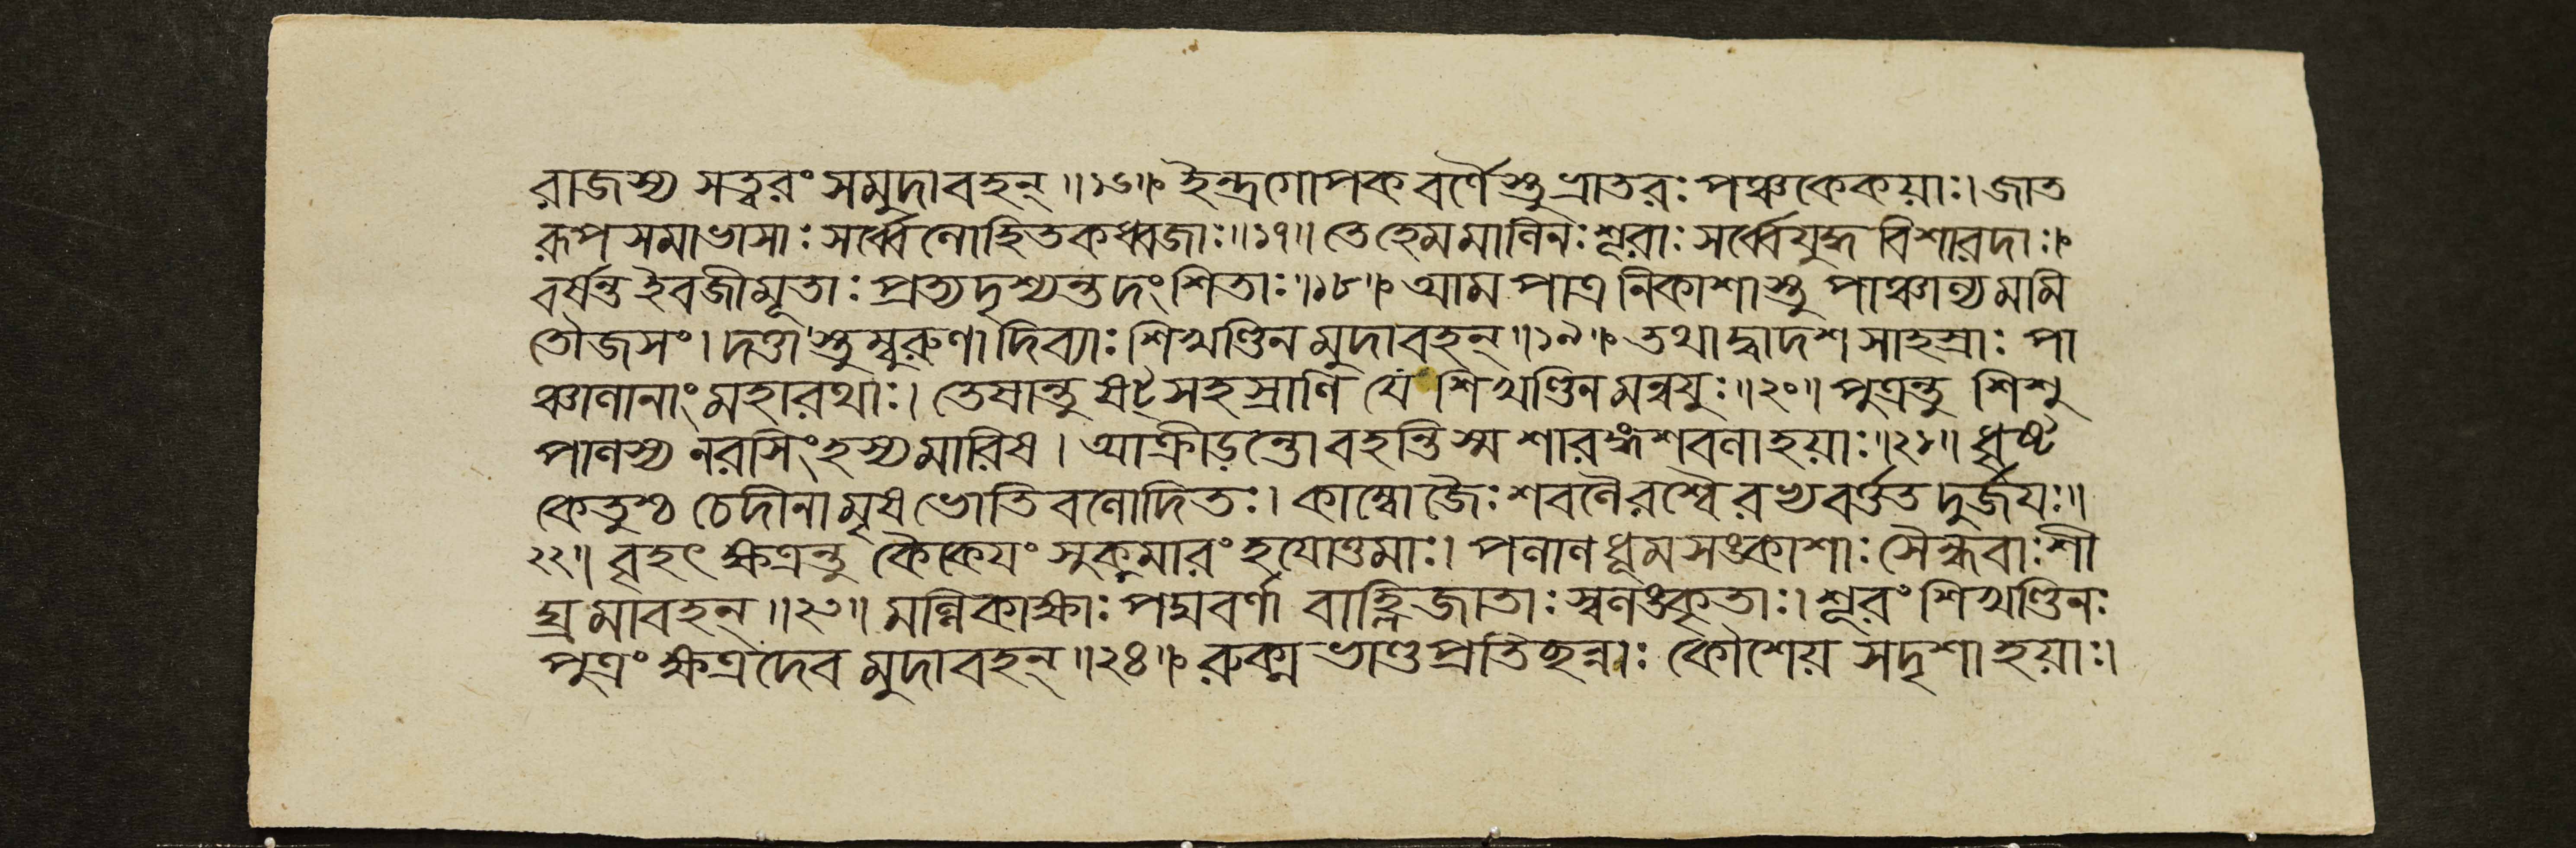 রাজস্য সত্বরং সমুদাবহন্ ॥১৬॥ ইন্দ্রগোপক বর্ণৈস্তু ভ্রাতরঃ পঞ্চকেকয়াঃ। জাত
রূপ সমাভাসাঃ সর্ব্বে লোহিতকধ্বজাঃ॥১৭॥ তে হেমমালিনঃ শূরাঃ সর্ব্বে যুদ্ধ বিশারদাঃ।
বর্ষন্ত ইব জীমূতাঃ প্রত্যদৃশ্যন্ত দংশিতাঃ॥১৮॥ আম পাত্র নিকাশাস্তু পাঞ্চাল্য মমি
তৌজসং। দত্তাস্তুম্বুরুণা দিব্যাঃ শিখণ্ডিন মুদাবহন্॥১৯॥ তথা দ্বাদশ সাহস্রাঃ পা
ঞ্চালানাং মহারথাঃ। তেষান্তু ষট্ সহস্রাণি যে শিখণ্ডিন মন্বযুঃ॥২০॥ পুত্রন্তু শিশু
পালস্য নরসিংহস্য মারিষ। আক্রীড়ন্তো বহন্তি স্ম শারঙ্গ শবলা হয়াঃ॥২১॥ ধৃষ্ট
কেতুশ্চ চেদীনা মৃষভোতি বলোদিতঃ। কাম্বোজৈঃ শবলৈরশ্বৈ রভ্যবর্ত্তত দুর্জয়ঃ॥
২২॥ বৃহৎ ক্ষত্রন্তু কৈকেয়ং সুকুমারং হয়োত্তমাঃ। পলাল ধূম সঙ্কাশাঃ সৈন্ধবাঃ শী
ঘ্র মাবহন্॥২৩॥ মল্লিকাক্ষাঃ পদ্মবর্ণা বাহ্লিজাতাঃ স্বলঙ্কৃতাঃ। শূরং শিখণ্ডিনঃ
পুত্রং ক্ষত্রদেব মুদাবহন্॥২৪॥ রুক্ম ভাণ্ড প্রতিচ্ছন্নাঃ কৌশেয় সদৃশা হয়াঃ।